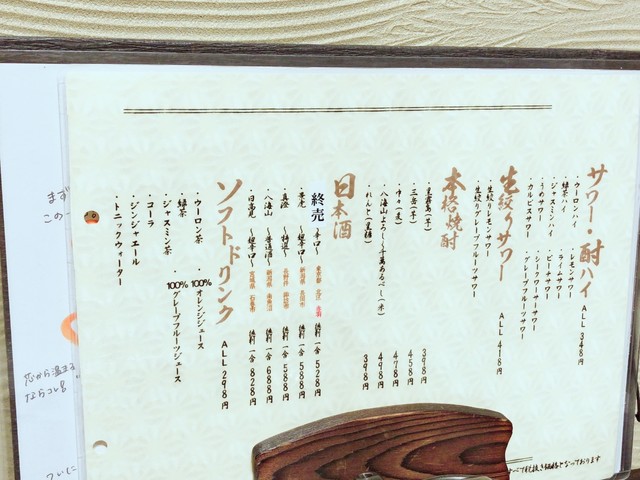 サワー・酎ハイ ALL 348円
・ウーロンハイ ・レモンサワー
・緑茶ハイ ・ライムサワー
・ジャスミンハイ ・ピーチサワー
・うめサワー ・シークワーサーサワー
・カルピスサワー ・グレープフルーツサワー
生絞りサワー ALL 418円
・生絞りレモンサワー
・生絞りグレープフルーツサワー
本格焼酎
・黒霧島(芋) 398円
・三岳(芋) 458円
・中々(麦) 478円
・八海山よろしく千萬あるべし(米) 498円
・れんと(黒糖) 398円
日本酒
終売 ～辛口～ 東京都 徳利 一合 528円
～超辛口～ 新潟県 長岡市 徳利 一合 588円
・真澄 ～特選～ 長野県 諏訪市 徳利 一合 588円
・八海山 ～普通酒～ 新潟県 南魚沼 徳利 一合 688円
・日高見 ～超辛口～ 宮城県 石巻市 徳利 一合 828円
ソフトドリンク ALL 298円
・ウーロン茶 ・100%オレンジジュース
・緑茶 ・100%グレープフルーツジュース
・ジャスミン茶
・コーラ
・ジンジャエール
・トニックウォーター
すべて税抜き価格となっております
まず
この
芯から温まる
ならコレ!!
ついに